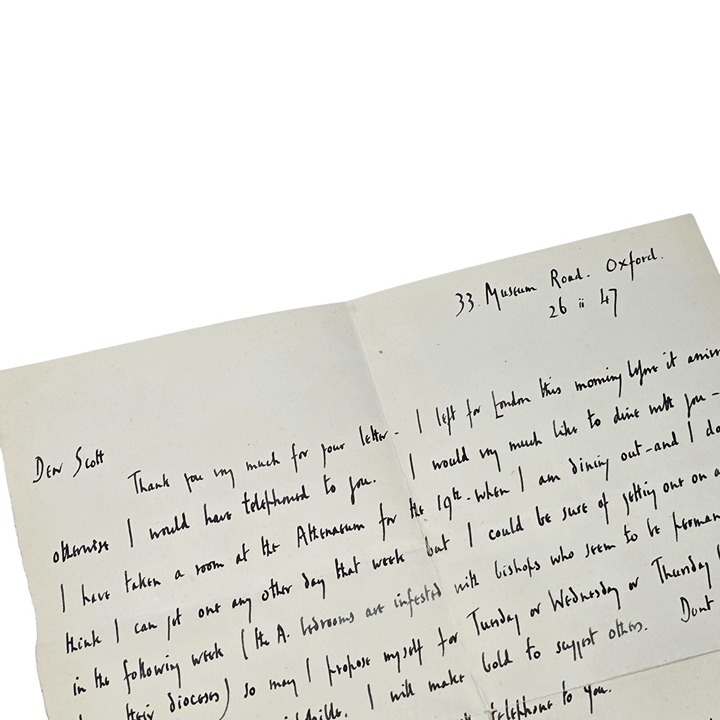 33. Museum Road. Oxford.
26 ii 47
Dear Scott
Thank you very much for your letter - I left for London this morning before it
otherwise I would have telephoned to you. I would very much like to dine with you -
I have taken a room at the Athenaeum for the 19th - when I am dining out - and I
think I can get one any other day that week but I could be sure of getting one on
in the following week (the A. bedrooms are infested with bishops who seem to be
their dioceses) so may I propose myself for Tuesday or Wednesday or Thursday
I will make bold to suggest others. Dont
telephone to you.